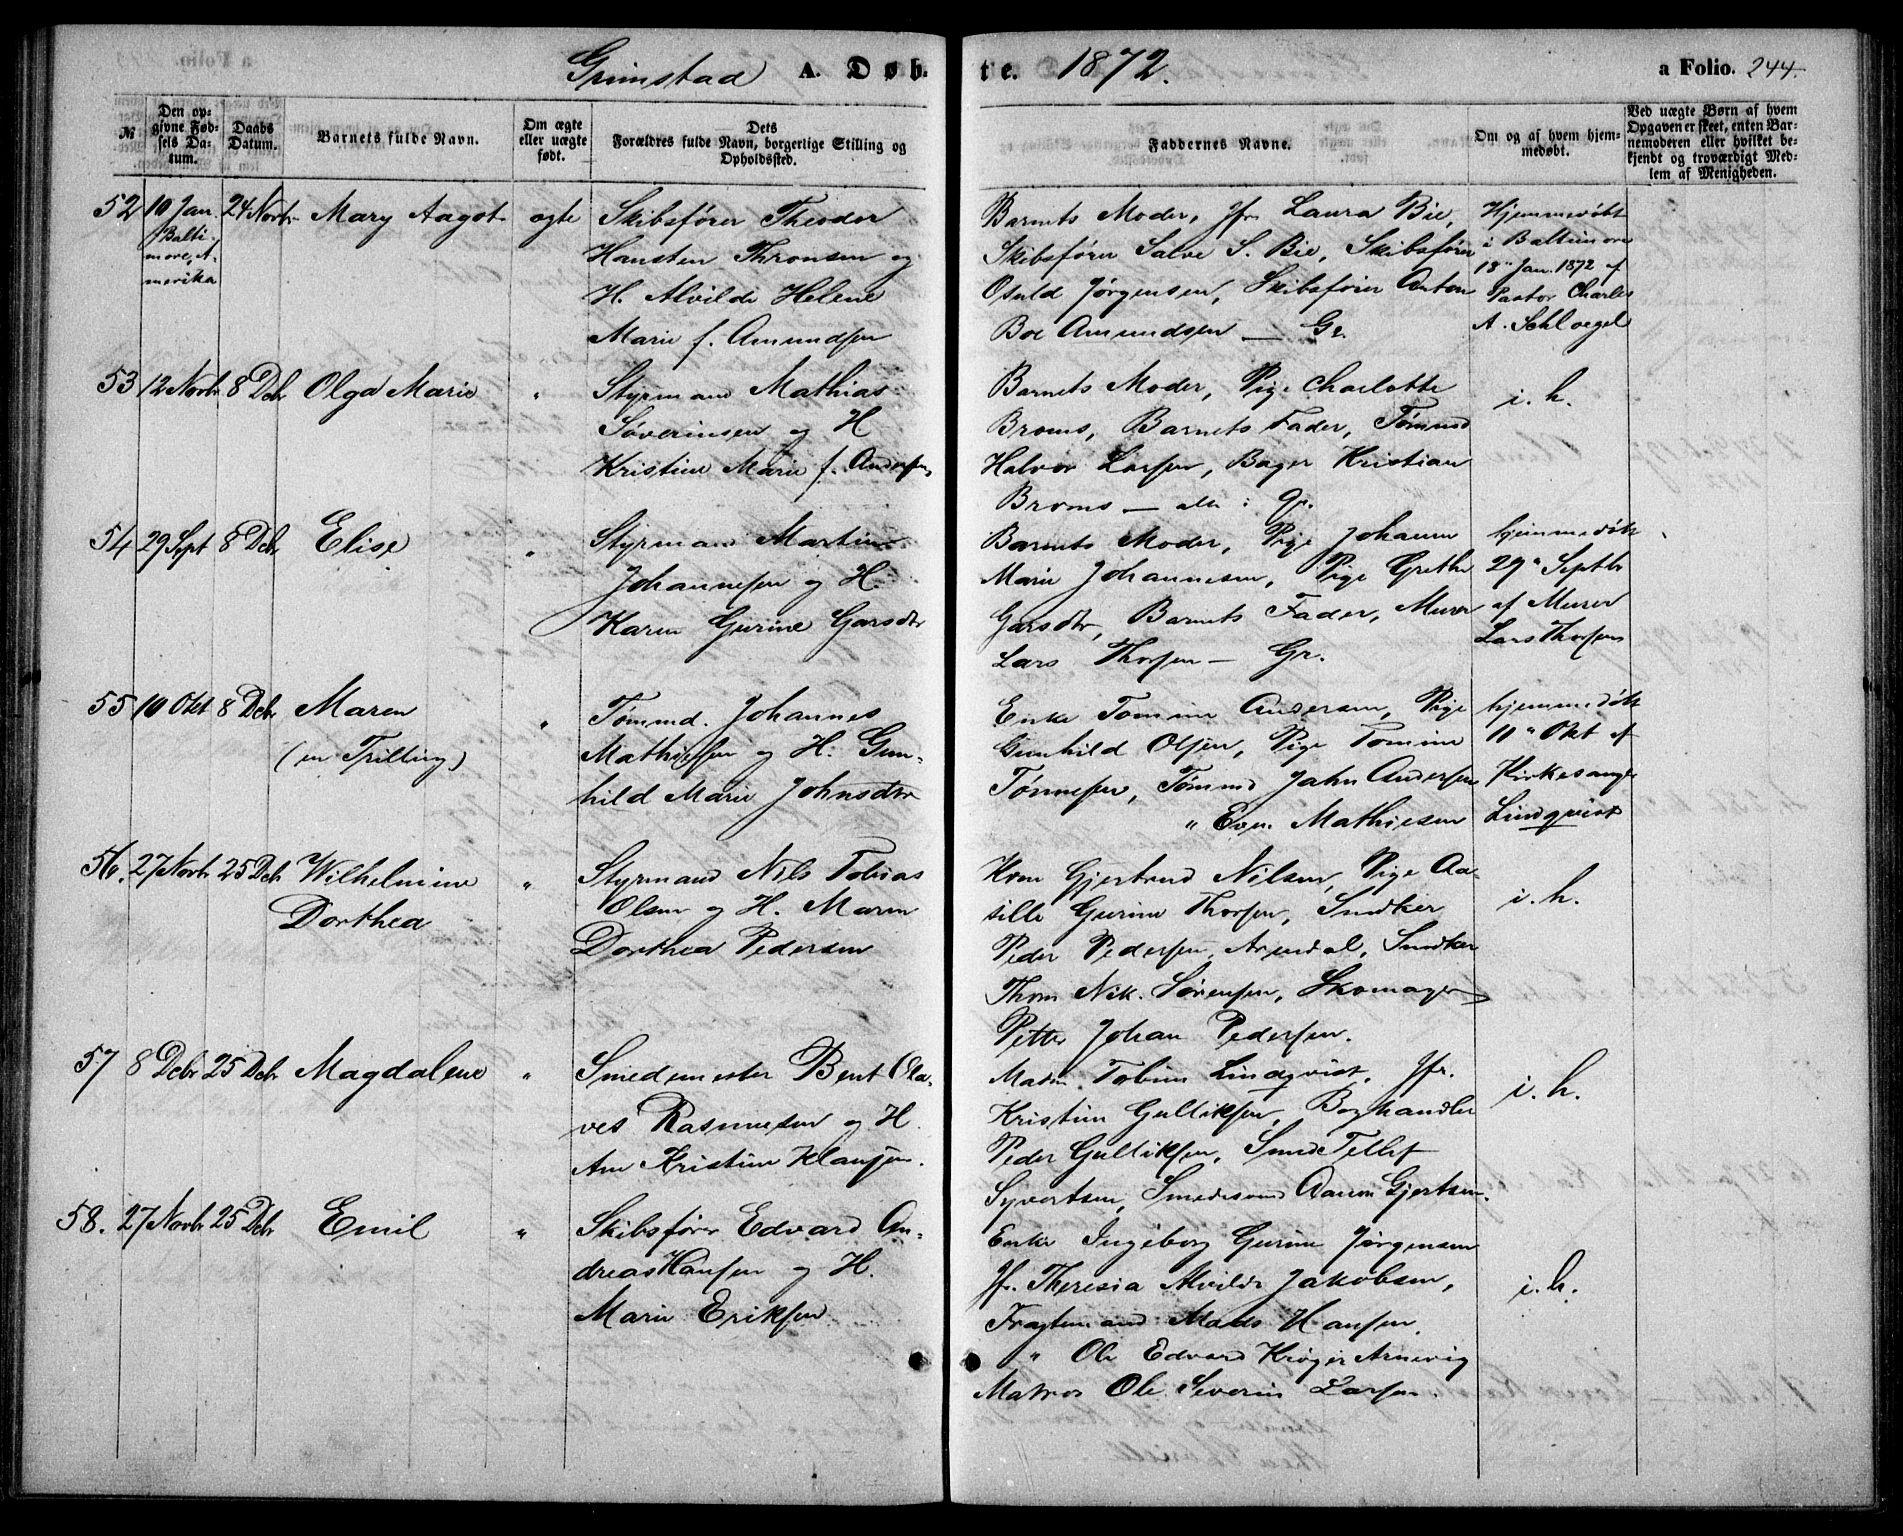 Grimstad A. Døbte. 1872. a Folio. 244.
№
Den opgivne Fødsels Datum.
Daabs Datum.
Barnets fulde Navn.
Om ægte eller uægte født.
Dets Forældres fulde Navn, borgerlige Stilling og Opholdssted.
Faddernes Navne.
Om og af hvem hjemmedøbt.
Ved uægte Børn af hvem Opgaven er skeet, enten Barnemoderen eller hvilket bekjendt og troværdigt Medlem af Menigheden.
52 10 Jan. 24 Novbr Mary Aagot ægte Skibsfører Theodor Barnets Moder, Jfr. Laura Bie, Hjemmedøbt
Baltimore, Amerika Hansten Thronsen og Skibsfører Salve S. Bie, Skibsfører i Baltimore
H. Alvilde Helene Osuld Jørgensen, Skibsfører Anton 18" Jan. 1872 af
Marie f. Amundsen Boe Amundsen — Gr. Pastor Charles
A. Schloegel
53 12 Novbr 8 Debr Olga Marie " Styrmand Mathias Barnets Moder, Pige Charlotte i. h.
Søverinsen og H. Broms, Barnets Fader, Tømmd
Kristine Marie f. Andersen Halvor Larsen, Bager Kristian
Broms — alle i Gr.
54 29 Sept 8 Debr Elise " Styrmand Martin Barnets Moder, Pige Johanne hjemmedøbt
Johannesen og H. Marie Johannesen, Pige Grethe 29" Septbr
Karen Gurine Garsdtr Garsdtr, Barnets Fader, Murer af Murer
Lars Thorsen — Gr. Lars Thorsen
55 10 Okt 8 Debr Maren " Tømmd. Johannes Enke Tomine Andersen, Pige hjemmedøbt
(en Trilling) Mathiesen og H. Gun- Gunhild Olsen, Pige Tomine 11" Okt af
hild Marie Johnsdtr Tønnesen, Tømmd Jahn Andersen Kirkesanger
" Even Mathiesen Lindqvist
56. 27 Novbr 25 Debr Wilhelmine " Styrmand Nils Tobias Kone Gjertrud Nilsen, Pige Aa- i. h.
Dorthea Olsen og H. Maren sille Gurine Thorsen, Snedker
Dorthea Pedersen Peder Pedersen, Arendal, Snedker
Thom Nik. Sørensen, Skomager
Petter Johan Pedersen.
57 8 Debr 25 Debr Magdalene " Smedemester Bent Ola- Madm. Tobine Lindqvist, Jfr. i. h.
ves Rasmusen og H. Kristine Gulliksen, Boghandler
Ane Kristine Klausen. Peder Gulliksen, Smed Tellef
Syvertsen, Smedesvend Aanon Gjertsen.
58. 27 Novbr 25 Debr Emil " Skibsfører Edvard An- Enke Ingeborg Gurine Jørgensen i. h.
dreas Hansen og H. Jfr. Theresia Alvilde Jakobsen,
Marie Eriksen Fragtemand Mads Hansen,
" Ole Edvard Krøger Arnevig
Matros Ole Severin Larsen.